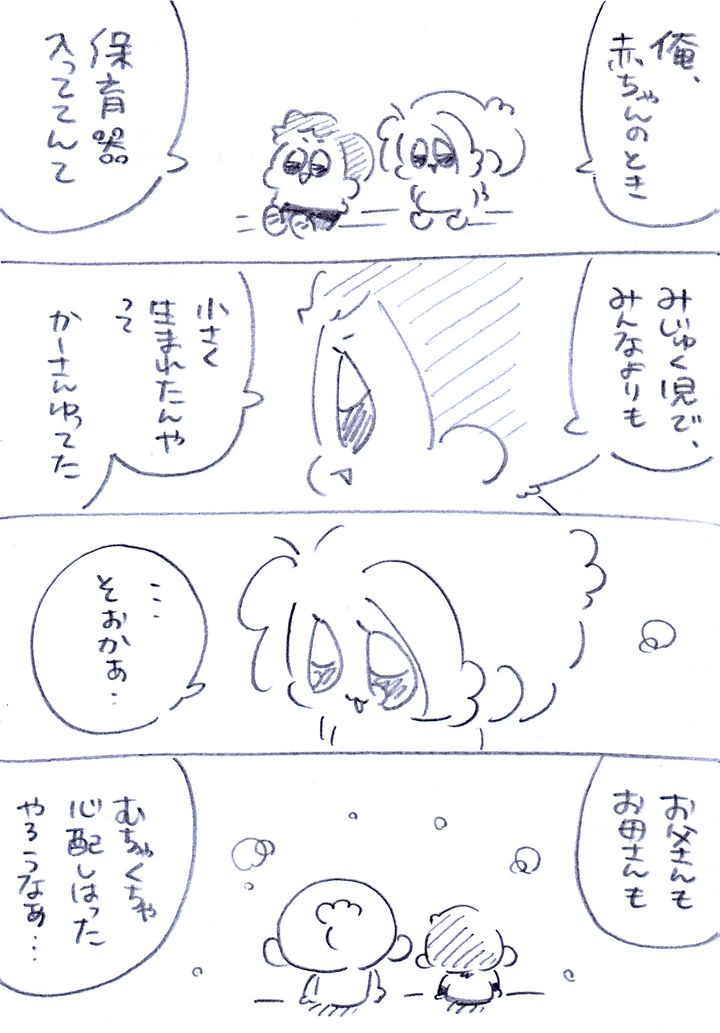 俺、
赤ちゃんのとき
保育器
入っててんて
みじゅく児で、
みんなよりも
小さく
生まれたんや
って
かーさんゆってた
…
そおかぁ…
お父さんも
お母さんも
むちゃくちゃ
心配しはった
やろうなぁ…